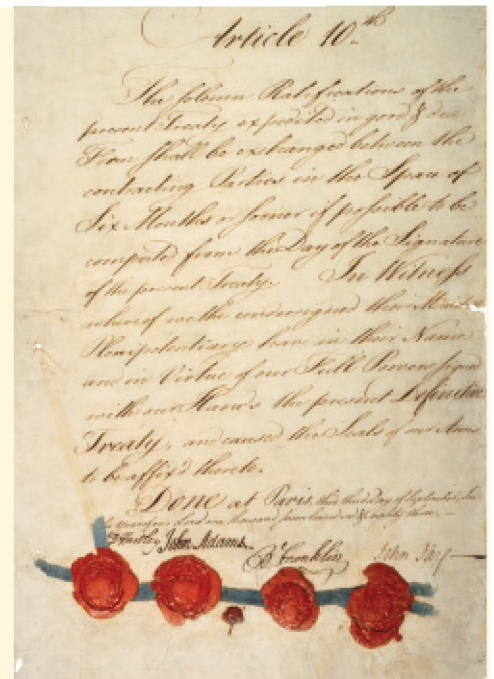 Article 10th
The solemn Ratifications of the
present Treaty expedited in good & due
Form shall be exchanged between the
contracting Parties in the Space of
Six Months or sooner if possible to be
computed from the Day of the Signature
of the present Treaty. In Witness
whereof we the undersigned their
Plenipotentiary have in their Name
and in Virtue of our Full Powers
with our Hands the present Definitive
Treaty, and caused the Seals of our Arms
to be affix'd thereto.
Done at Paris, this third Day of September, In
the Year of our Lord one thousand seven hundred & eighty three,
D Hartley John Adams. B Franklin John Jay